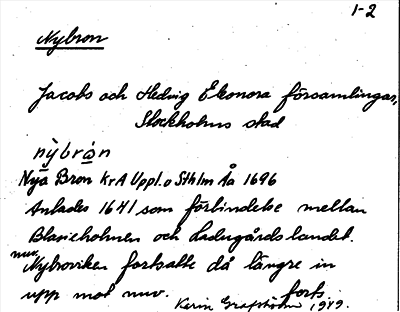 1-2
Nybron
Jacobs och Hedvig Eleonora församlingar,
Stockholms stad
nỳbrón
Nya Bron KrA Uppl. o Sthlm Åa 1696
Anlades 1641 som förbindelse mellan
Blasieholmen och Ladugårdslandet.
nuv.
Nybroviken fortsatte då längre in
upp mot nuv. forts.
Karin Grafström 1949.